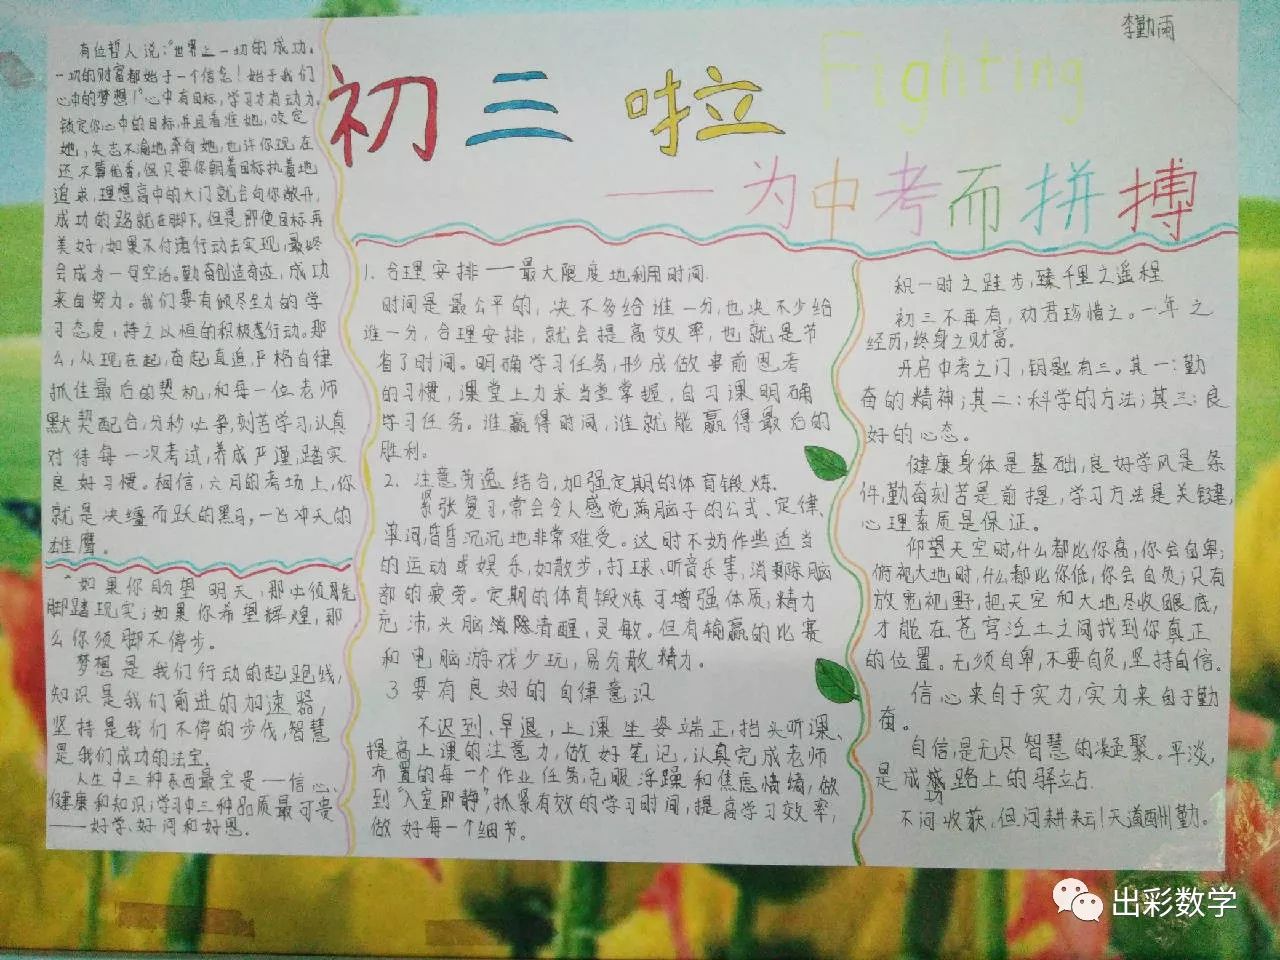 李勤雨
初三啦
Fighting
——为中考而拼搏
有位哲人说:"世界上一切的成功。
一切的财富都始于一个信念!始于我们
心中的梦想!"心中有目标,学习才有动力。
锁定你心中的目标,并且看准她,咬定
她,矢志不渝地奔向她,也许你现在
还不算优秀,但只要你朝着目标执着地
追求,理想高中的大门就会向你敞开,
成功的路就在脚下。但是即使目标再
美好,如果不付诸行动去实现,最终
会成为一句空话。勤奋创造奇迹,成功
来自努力。我们要有倾尽全力的学
习态度,持之以恒的积极感行动。那
么,从现在起,奋起直追,严格自律
抓住最后的契机,和每一位老师
默契配合,分秒必争,刻苦学习,认真
对待每一次考试,养成严谨,踏实
良好习惯。相信,六月的考场上,你
就是决缰而跃的黑马,一飞冲天的
雄鹰。
"如果你盼望明天,那必须先
脚踏现实;如果你希望辉煌,那
么你须脚不停步。
梦想是我们行动的起跑线,
知识是我们前进的加速器,
坚持是我们不停的步伐,智慧
是我们成功的法宝。
人生中三种东西最宝贵——信心、
健康和知识;学习中三种品质最可贵
——好学、好问和好思。
1.合理安排——最大限度地利用时间.
时间是最公平的,决不多给谁一分,也决不少给
谁一分,合理安排,就会提高效率,也就是节
省了时间。明确学习任务,形成做事前思考
的习惯,课堂上力求当堂掌握,自习课明确
学习任务。谁赢得时间,谁就能赢得最后的
胜利。
2. 注意劳逸结合,加强定期的体育锻炼.
紧张复习,常会令人感觉满脑子的公式、定律、
单词,昏昏沉沉地非常难受。这时不妨作些适当
的运动或娱乐,如散步,打球、听音乐等,消除脑
部的疲劳。定期的体育锻炼可增强体质,精力
充沛,头脑消除清醒,灵敏。但有输赢的比赛
和电脑游戏少玩,易分散精力。
3 要有良好的自律意识
不迟到、早退,上课坐姿端正,抬头听课、
提高上课的注意力,做好笔记,认真完成老师
布置的每一个作业任务,克服浮躁和焦虑情绪,做
到"入室即静",抓紧有效的学习时间,提高学习效率,
做好每一个细节。
积一时之跬步,臻千里之遥程
初三不再有,劝君珍惜之。一年之
经历,终身之财富。
开启中考之门,钥匙有三。其一:勤
奋的精神;其二:科学的方法;其三:良
好的心态。
健康身体是基础,良好学风是条
件,勤奋刻苦是前提,学习方法是关键,
心理素质是保证。
仰望天空时,什么都比你高,你会自卑;
俯视大地时,什么都比你低,你会自负;只有
放宽视野,把天空和大地尽收眼底,
才能在苍穹泛土之间找到你真正
的位置。无须自卑,不要自负,坚持自信。
信心来自于实力,实力来自于勤
奋。
自信,是无尽智慧的凝聚。平淡,
是成功路上的驿站.
不问收获,但问耕耘!天道酬勤。
出彩数学